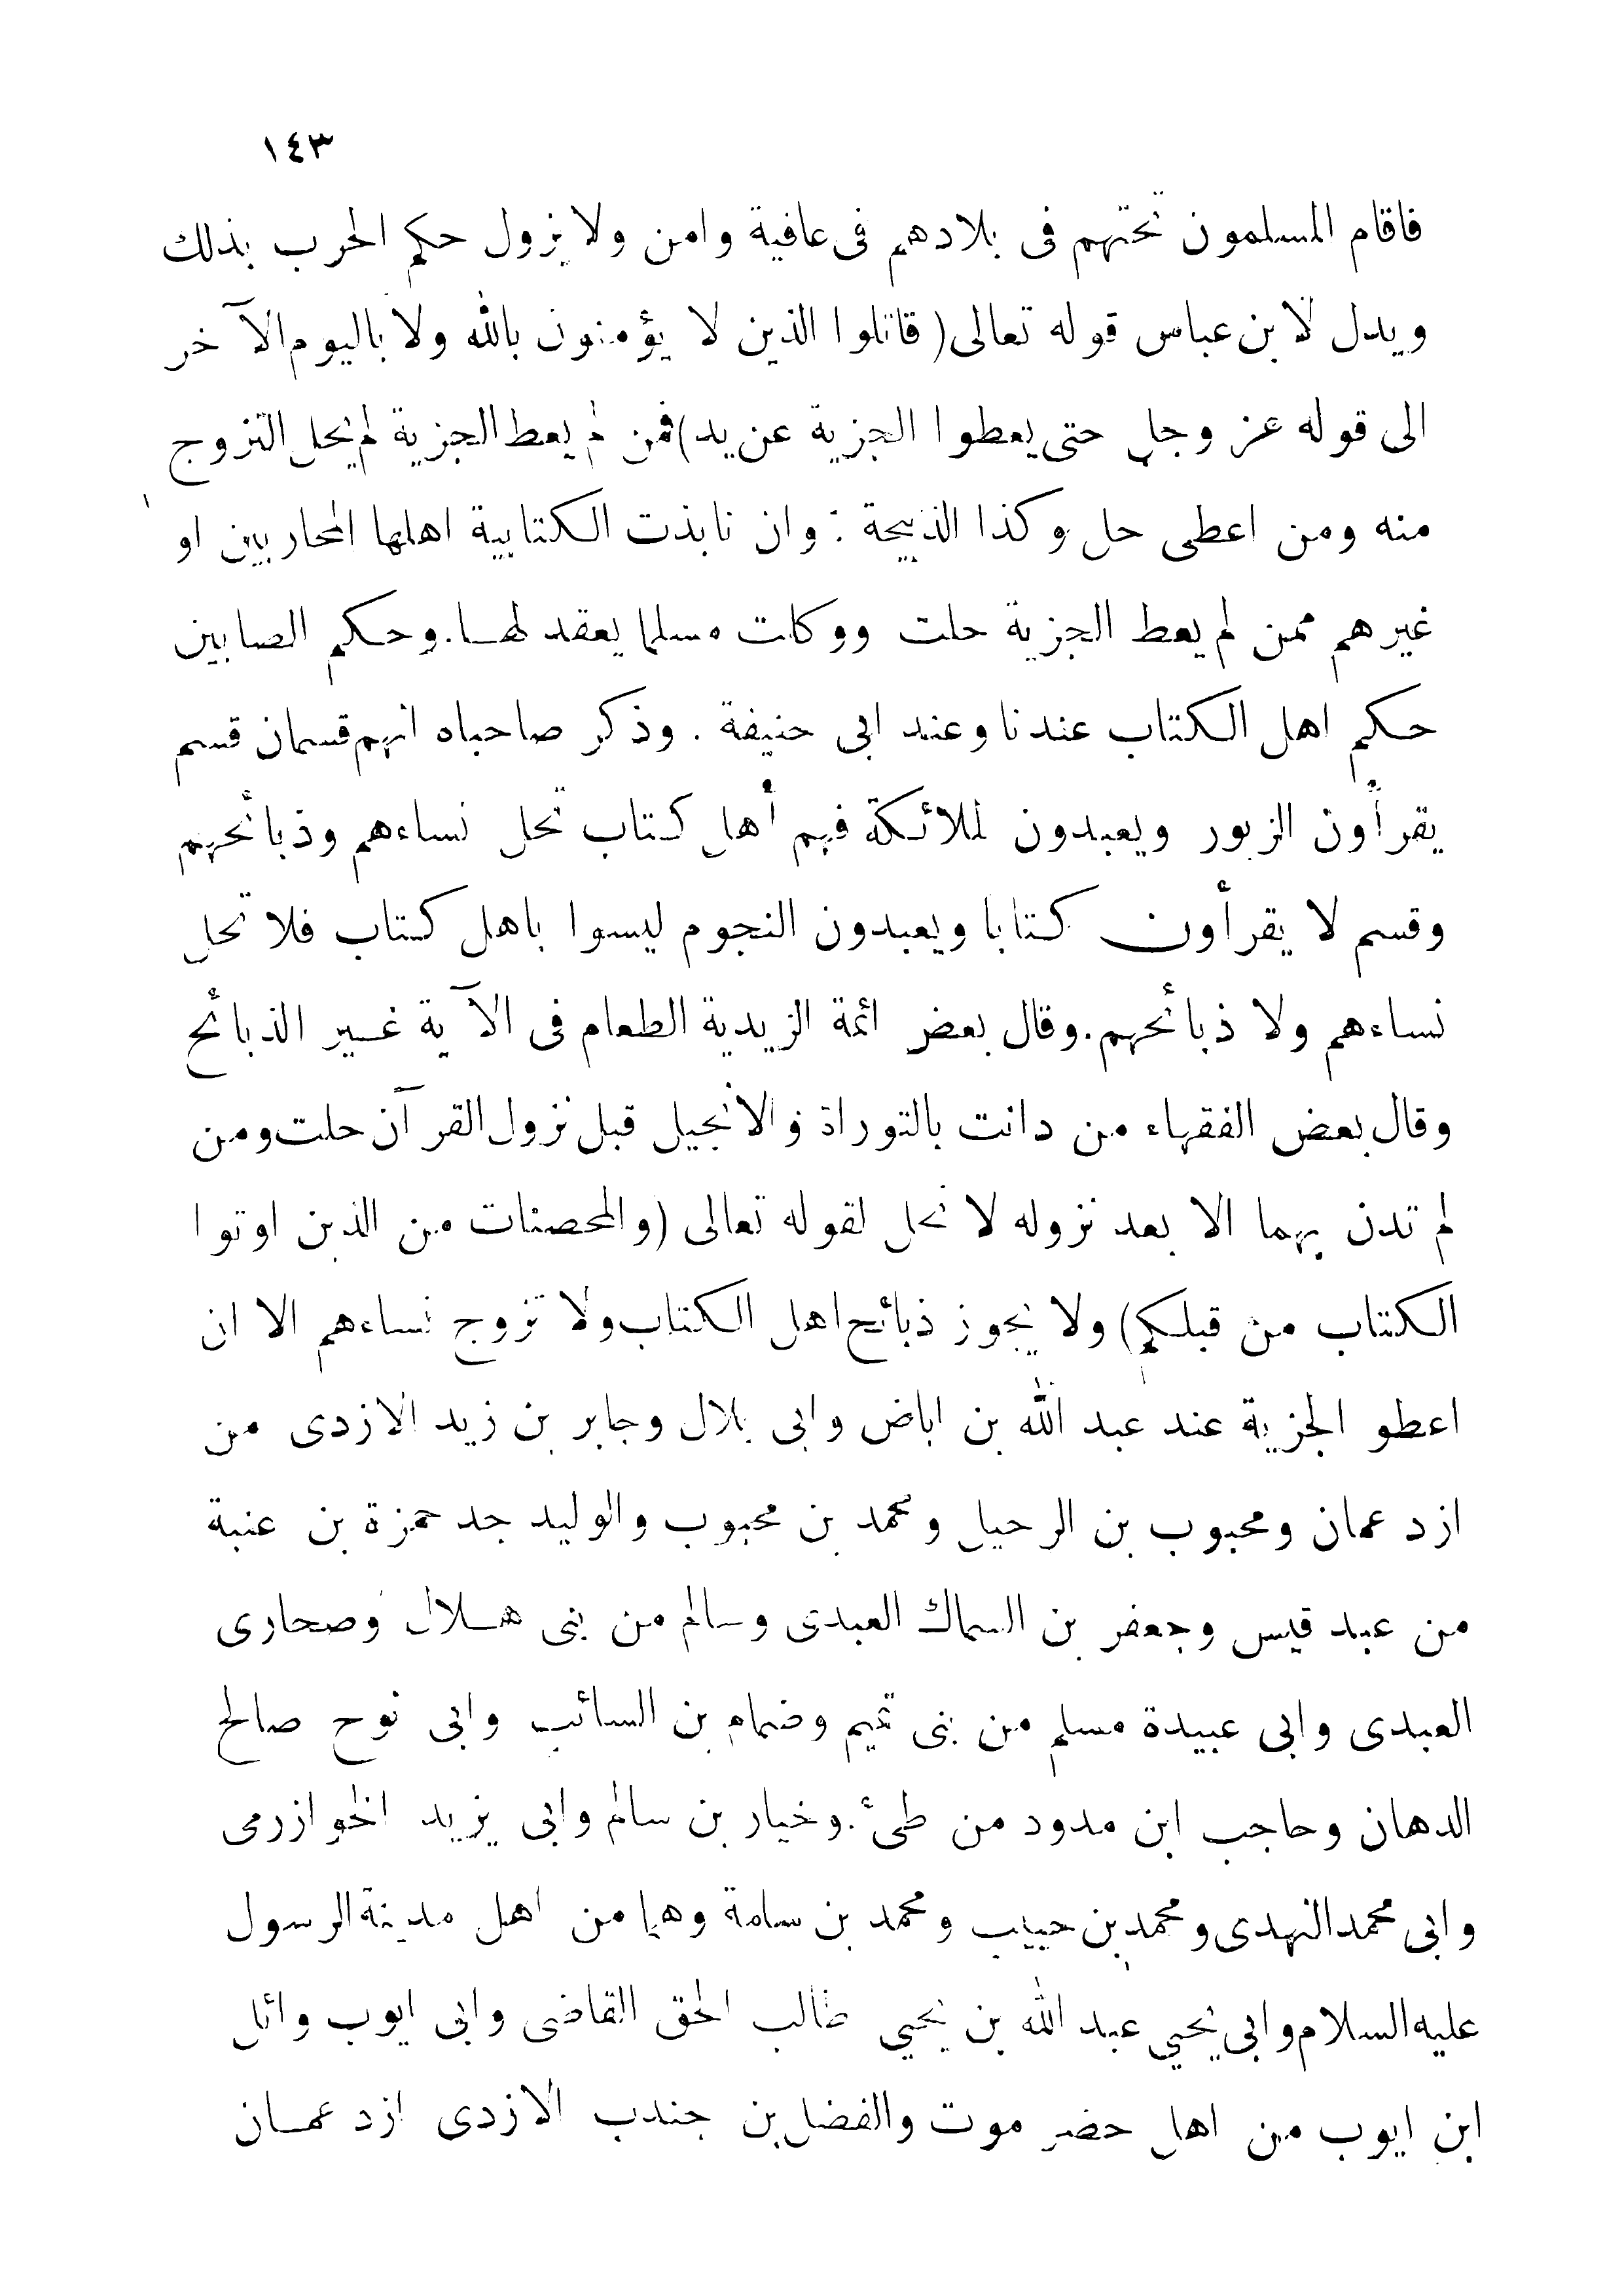 ١٤٣
فاقام المسلمون تحتهم فى بلادهم فى عافية وامن ولا يزول حكم الحرب بذلك
ويدل لابن عباس قوله تعالى (قاتلوا الذين لا يؤمنون بالله ولا باليوم الآخر
الى قوله عز وجل حتى يعطوا الجزية عن يد) فمن لم يعط الجزية لم يحل التزوج
منه ومن اعطى حل وكذا الذبيحة : وان نابذت الكتابية اهلها المحاربين او
غيرهم ممن لم يعط الجزية حلت ووكلت مسلما يعقد لها. وحكم الصابين
حكم اهل الكتاب عندنا وعند ابى حنيفة . وذكر صاحباه انهم قسمان قسم
يقرأون الزبور ويعبدون لملائكة فهم أهل كتاب تحل نساءهم وذبائحهم
وقسم لا يقرأون كتابا ويعبدون النجوم ليسوا باهل كتاب فلا تحل
نساءهم ولا ذبائحهم. وقال بعض ائمة الزيدية الطعام فى الآية غير الذبائح
وقال بعض الفقهاء من دانت بالتوراة والانجيل قبل نزول القرآن حلت ومن
لم تدن بهما الا بعد نزوله لا تحل لقوله تعالى (والمحصنات من الذين اوتوا
الكتاب من قبلكم) ولا يجوز ذبائح اهل الكتاب ولا تزوج نساءهم الا ان
اعطو الجزية عند عبد الله بن اباض وابى بلال وجابر بن زيد الازدى من
ازد عمان ومحبوب بن الرحيل ومحمد بن محبوب والوليد جد حمزة بن عنبة
من عبد قيس وجعفر بن السماك العبدى وسالم من بنى هلال وصحارى
العبدى وابى عبيدة مسلم من بنى تميم وضمام بن السائب وابى نوح صالح
الدهان وحاجب ابن مدود من طىء. وخيار بن سالم وابى يزيد الخوازرمى
وابى محمد النهدى ومحمد بن حبيب ومحمد بن سامة وهما من اهل مدينة الرسول
عليه السلام وابى يحيي عبد الله بن يحيي طالب الحق القاضى وابى ايوب وائل
ابن ايوب من اهل حضر موت والفضل بن جندب الازدى ازد عمان